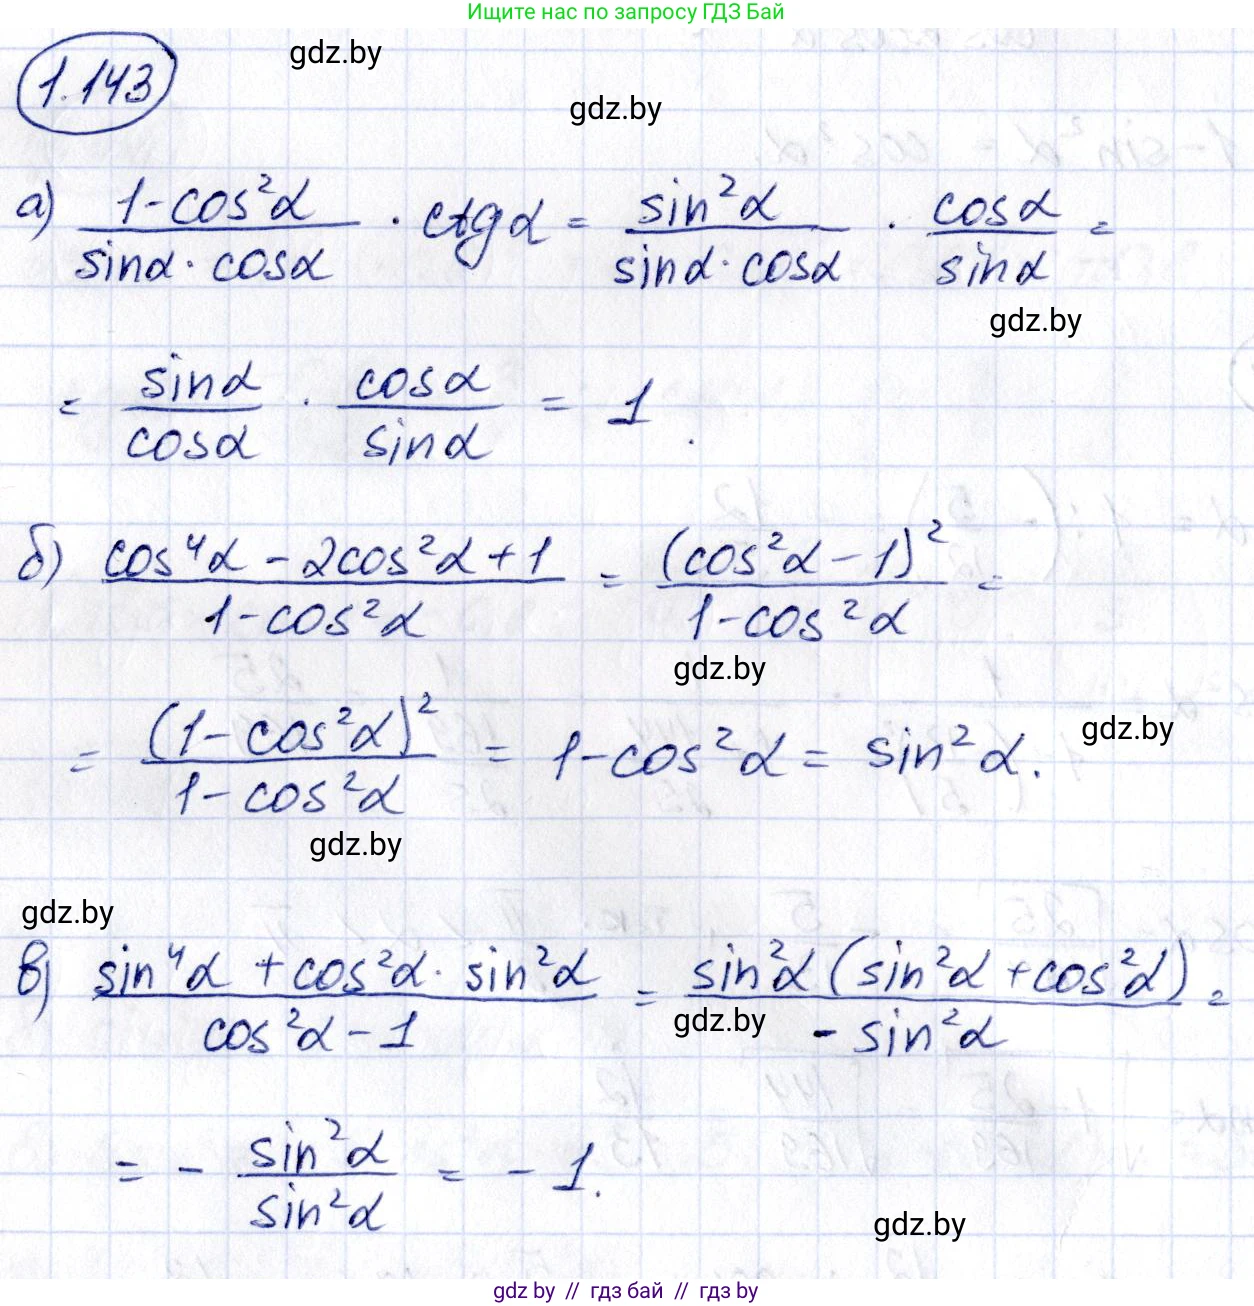 Ищите нас по запросу ГДЗ Бай
gdz.by
1.143
gdz.by
а) (1-cos²α)/(sinα·cosα) · ctgα = (sin²α)/(sinα·cosα) · (cosα)/(sinα) =
gdz.by
= (sinα)/(cosα) · (cosα)/(sinα) = 1.
б) (cos⁴α - 2cos²α + 1)/(1-cos²α) = (cos²α - 1)²/(1-cos²α) =
gdz.by
gdz.by
= (1-cos²α)²/(1-cos²α) = 1-cos²α = sin²α.
gdz.by
gdz.by
в) (sin⁴α + cos²α · sin²α)/(cos²α - 1) = (sin²α (sin²α + cos²α))/(-sin²α) =
gdz.by
= - (sin²α)/(sin²α) = -1.
gdz.by
gdz by // гдз бай // гдз by